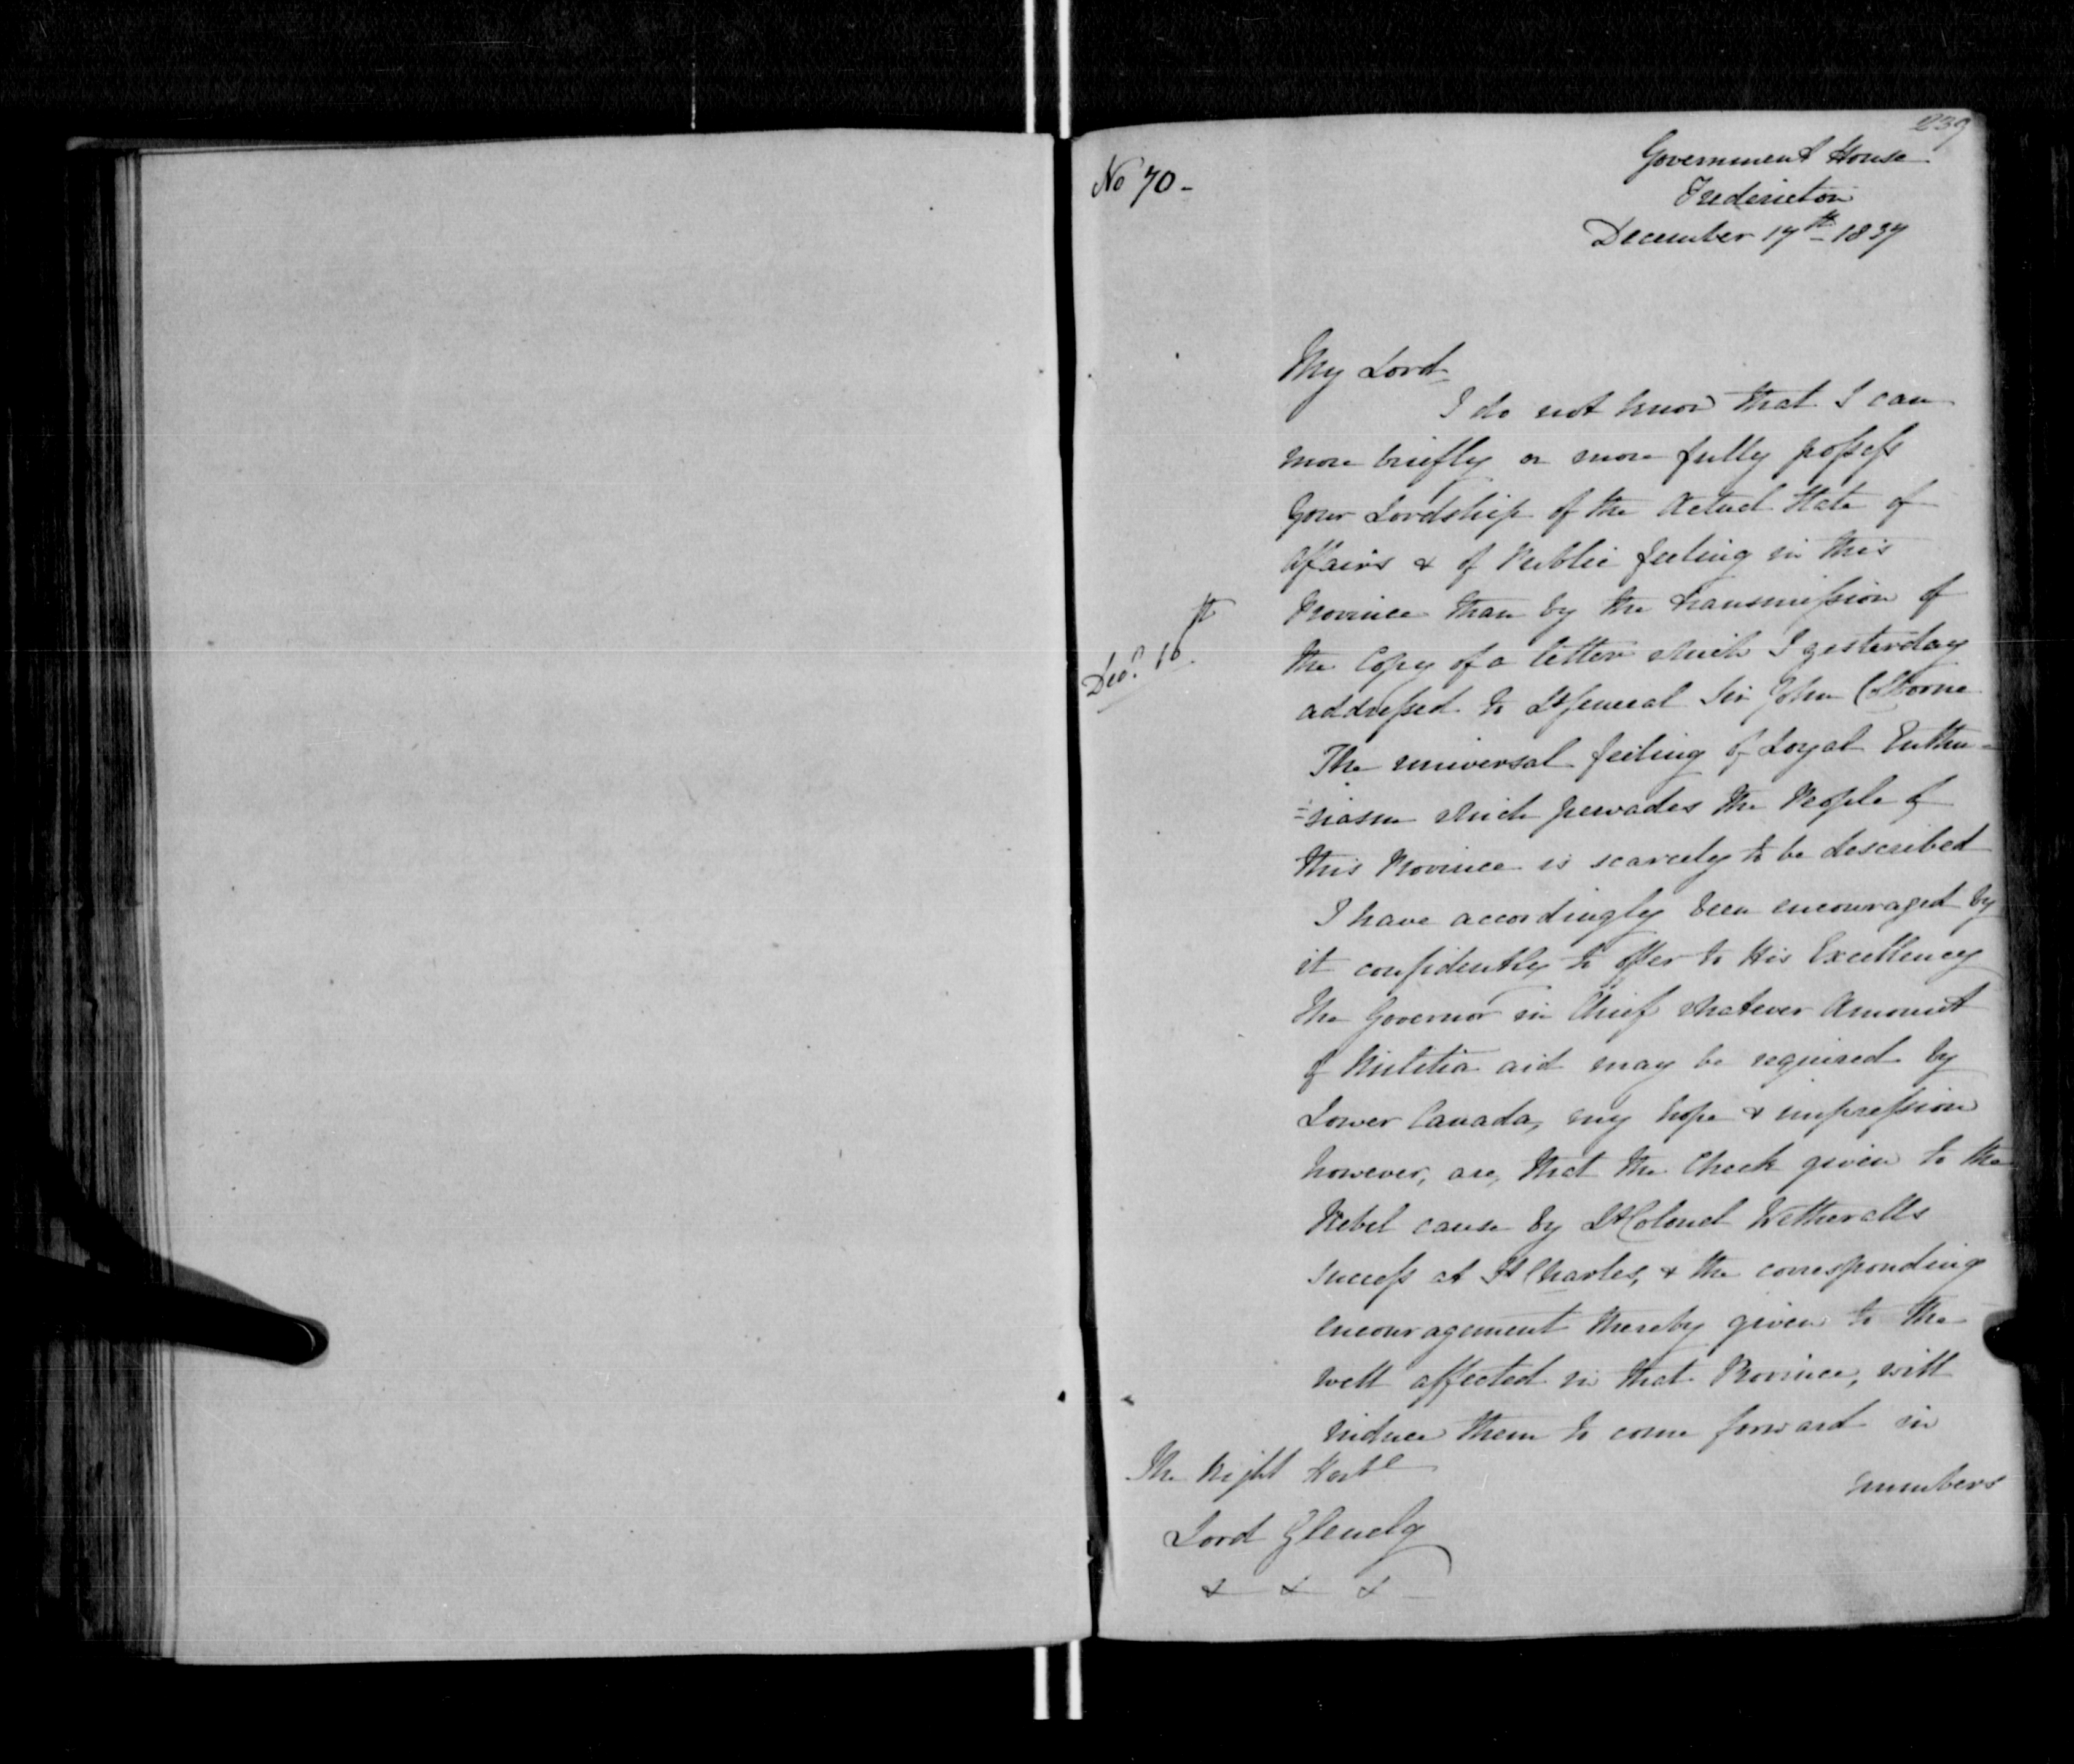 239
No 70-
Government House
Fredericton
December 17th 1837
My Lord
I do not know that I can
more briefly or more fully possess
Your Lordship of the Actual State of
Affairs & of Public feeling in this
Province than by the transmission of
Decr. 16th
the Copy of a letter which I yesterday
addressed to Lt General Sir John Colborne
The universal feeling of Loyal Enthu=
=siasm which pervades the People of
this Province is scarcely to be described
I have accordingly been encouraged by
it confidently to offer to His Excellency
the Governor in Chief whatever Amount
of Militia aid may be required by
Lower Canada, my hope & impression
however, are, that the Check given to the
Rebel cause by Lt Colonel Wetheralls
success at St Charles, & the corresponding
encouragement thereby given to the
well affected in that Province, will
induce them to come forward in
numbers
The Right Honble
Lord Glenelg
& & &